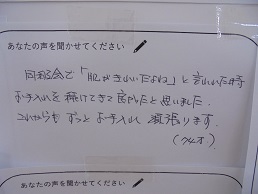 あなたの声を聞かせてください
同窓会で「肌がきれいだよね」と言われた時
お手入れを続けてきて良かったと思いました.
これからもずっとお手入れ頑張ります.
あなたの声を聞かせてください